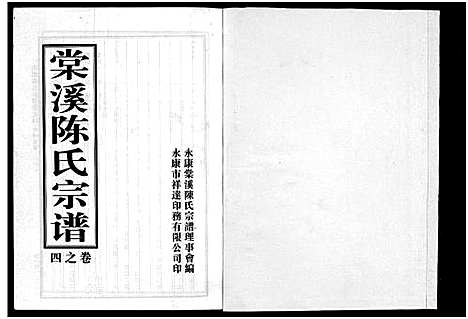 棠溪陈氏宗谱
四之卷
永康棠溪陳氏宗譜理事會編
永康市祥達印務有限公司印